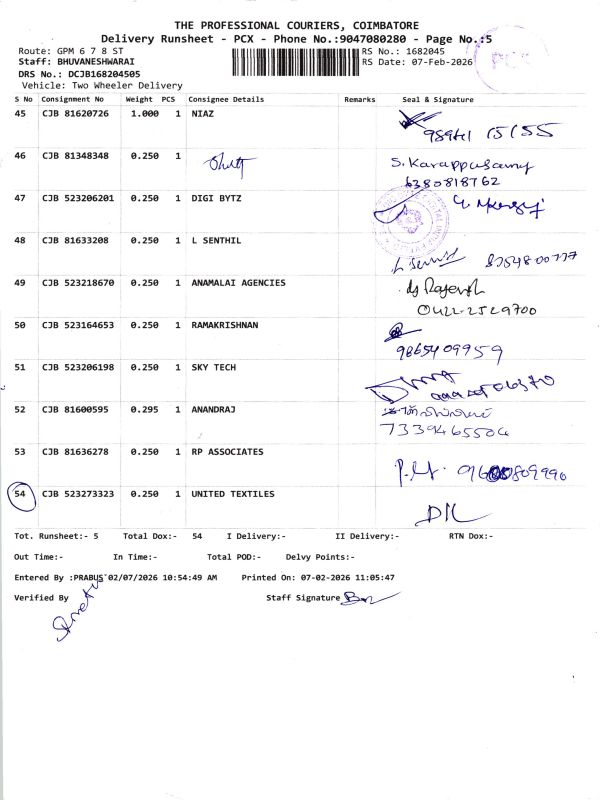 THE PROFESSIONAL COURIERS, COIMBATORE
Delivery Runsheet - PCX - Phone No.:9047080280 - Page No.:5
Route: GPM 6 7 8 ST
RS No.: 1682045
Staff: BHUVANESHWARAI
RS Date: 07-Feb-2026
DRS No.: DCJB168204505
Vehicle: Two Wheeler Delivery
PCX
S No Consignment No Weight PCS Consignee Details Remarks Seal & Signature
45 CJB 81620726 1.000 1 NIAZ
46 CJB 81348348 0.250 1 S. Karuppusamy
6380818762
47 CJB 523206201 0.250 1 DIGI BYTZ
48 CJB 81633208 0.250 1 L SENTHIL
8754800777
49 CJB 523218670 0.250 1 ANAMALAI AGENCIES Rajesh
0422-2529700
50 CJB 523164653 0.250 1 RAMAKRISHNAN
9865409959
51 CJB 523206198 0.250 1 SKY TECH
52 CJB 81600595 0.295 1 ANANDRAJ
7339465504
53 CJB 81636278 0.250 1 RP ASSOCIATES
54 CJB 523273323 0.250 1 UNITED TEXTILES
Tot. Runsheet:- 5 Total Dox:- 54 I Delivery:- II Delivery:- RTN Dox:-
Out Time:- In Time:- Total POD:- Delvy Points:-
Entered By :PRABUS 02/07/2026 10:54:49 AM Printed On: 07-02-2026 11:05:47
Verified By Staff Signature